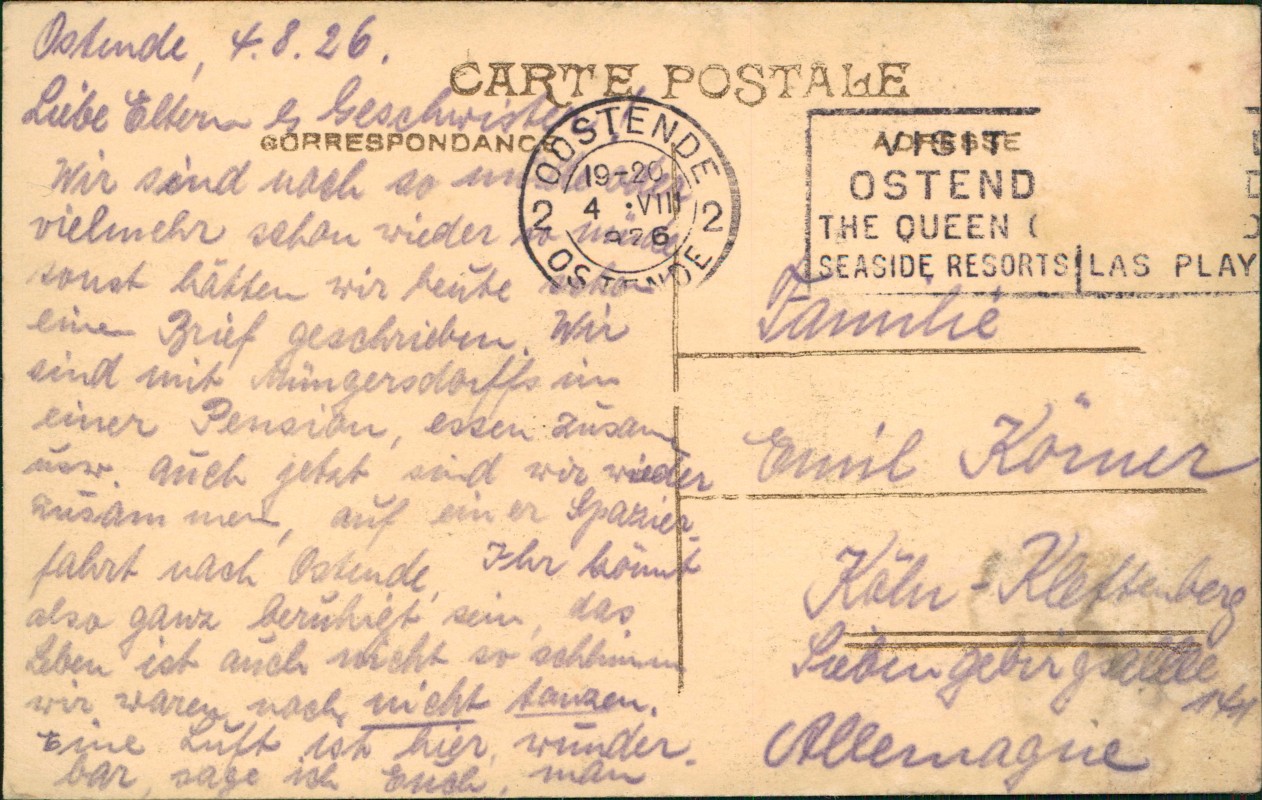 Ostende, 4.8.26.
CARTE POSTALE
Liebe Eltern & Geschwister
CORRESPONDANCE
Wir sind noch so
vielmehr schon wieder so müde
sonst hätten wir heute schon
einen Brief geschrieben. Wir
sind mit Müngersdorffs in
einer Pension, essen zusam
usw. auch jetzt sind wir wieder
zusammen, auf einer Spazier-
fahrt nach Ostende. Ihr könnt
also ganz beruhigt sein, das
Leben ist auch nicht so schlimm
wir waren noch nicht tanzen.
Eine Luft ist hier, wunder-
bar, sage ich Euch, man
OOSTENDE
19-20
2 4 ·VIII 2
926
OSTENDE
ADRESSE
VISIT
OSTEND
THE QUEEN
SEASIDE RESORTS LAS PLAY
Familie
Emil Körner
Köln-Klettenberg
Siebengebirgsallee
Allemagne